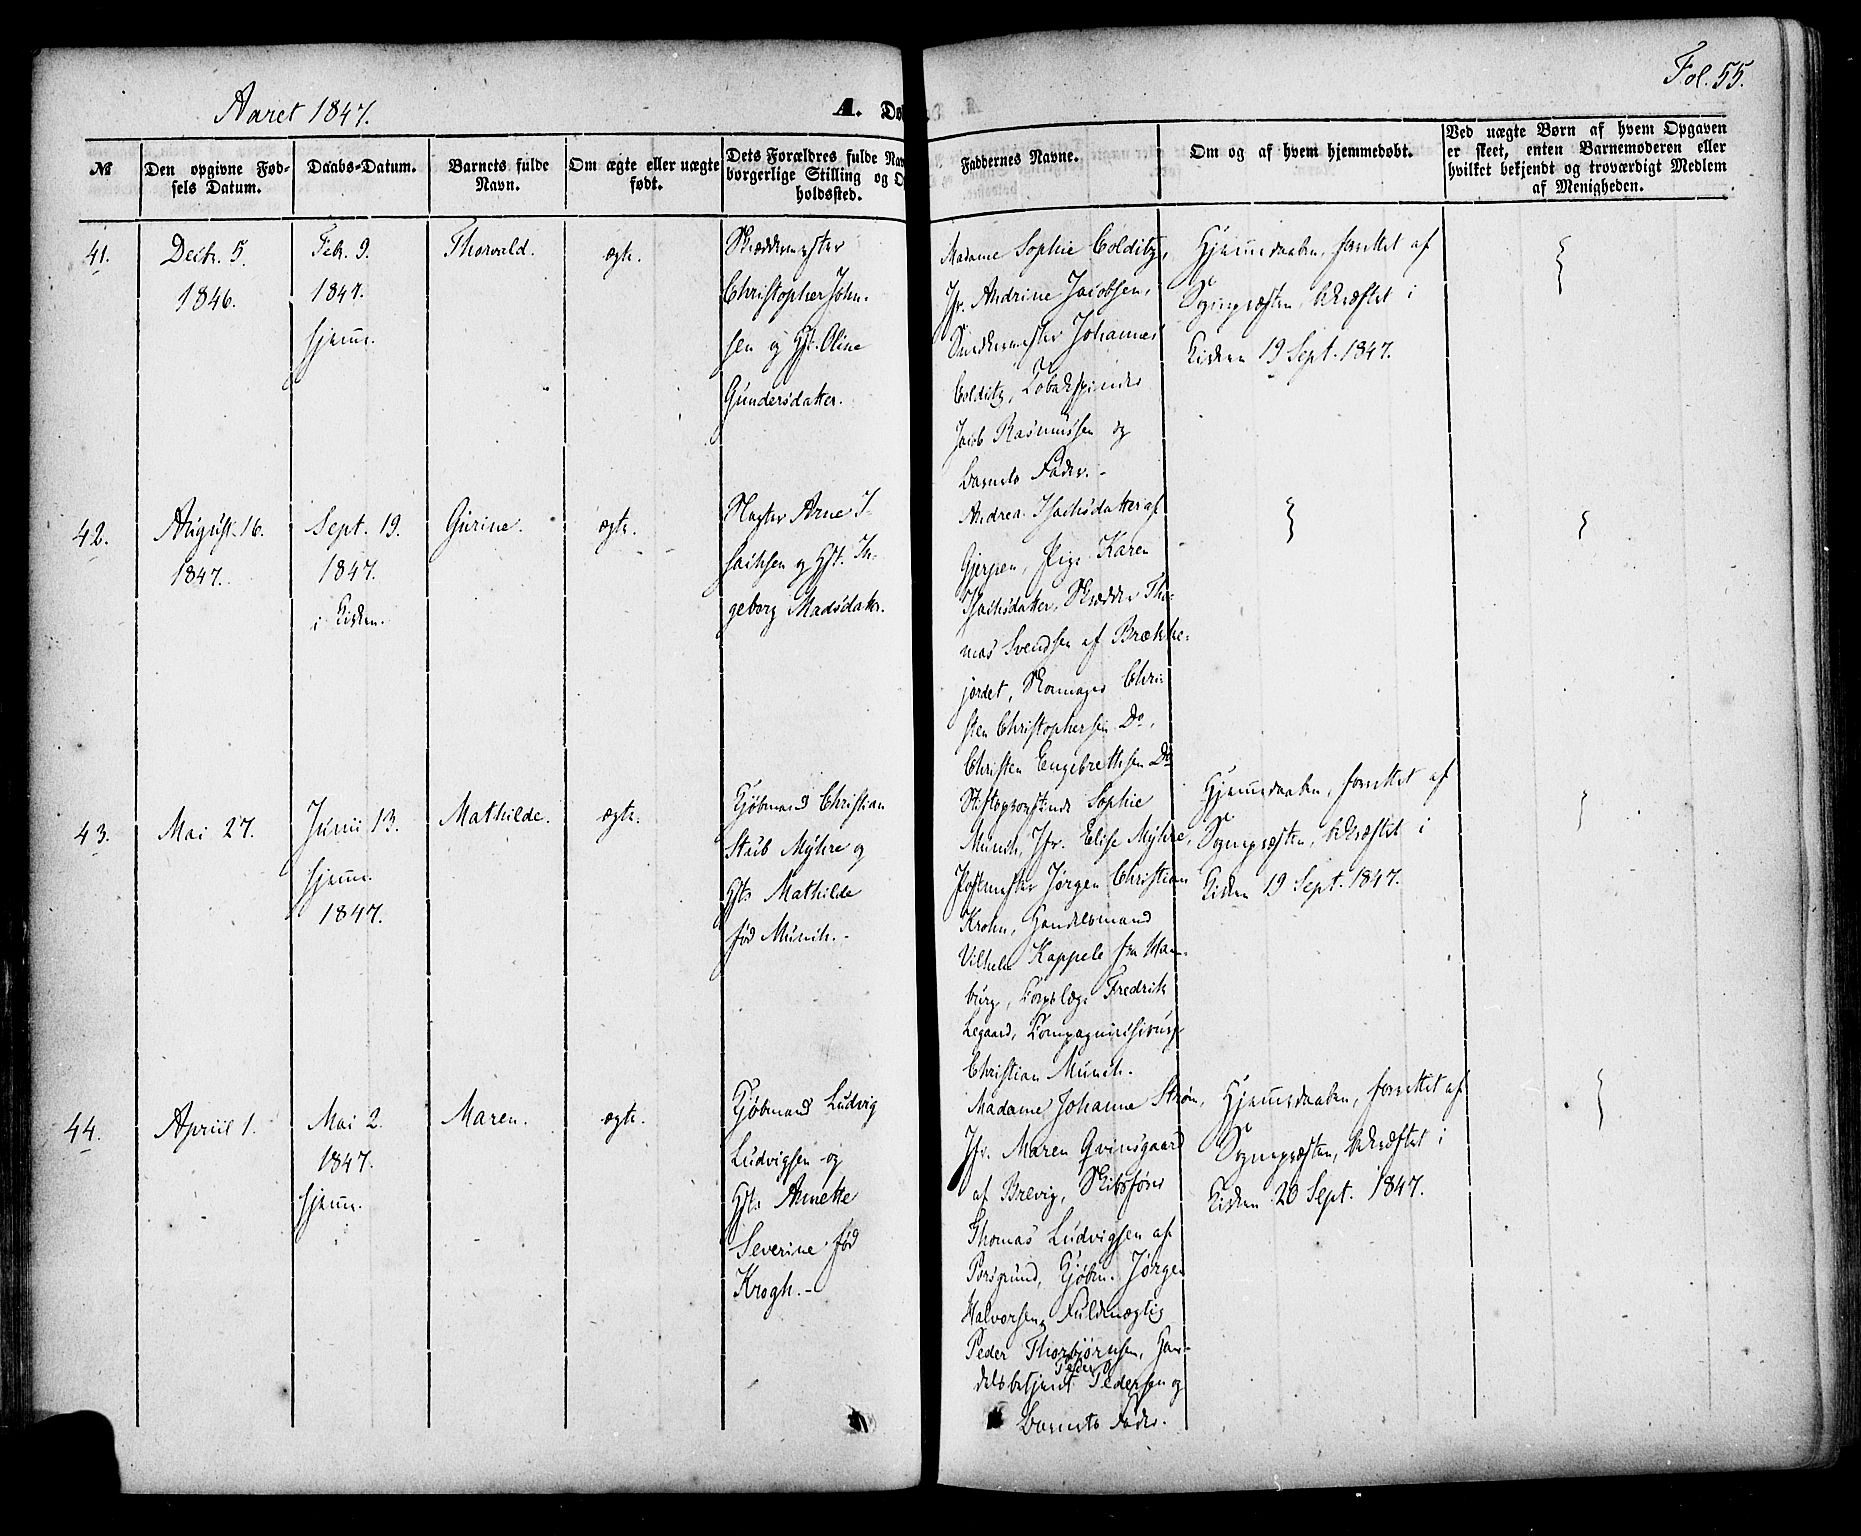 Fol. 55.
Aaret 1847.
A. Dø
№
Den opgivne Fød-
sels Datum.
Daabs-Datum.
Barnets fulde
Navn.
Om ægte eller uægte
født.
Dets Forældres fulde Nav
borgerlige Stilling og O
holdssted.
Faddernes Navne.
Om og af hvem hjemmedøbt.
Ved uægte Børn af hvem Opgaven
er skeet, enten Barnemoderen eller
hvilket bekjendt og troværdigt Medlem
af Menigheden.
41.
Decbr. 5.
1846.
Febr. 9.
1847.
hjemme.
Thorvald.
ægte.
Skræddermester
Christopher John-
sen og Hst. Oline
Gundersdatter.
Madame Sophie Colditz,
Jfr. Andrine Jacobsen,
Snedkermester Johannes
Colditz, Tobakspinder
Jacob Rasmussen og
Barnets Fader.-
Hjemmedaaben, forrettet af
Sognepræsten, bekræftet i
Kirken 19 Sept. 1847.
42.
August 16.
1847.
Sept. 19.
1847.
i Kirken.
Gurine.
ægte.
Slagter Arne I-
sachsen og Hst. In-
geborg Madsdatter.
Andrea Isachsdatter af
Gjerpen, Pige Karen
Isachsdatter, Skrædder Tho-
mas Svendsen af Brække-
jordet, Skomager Chri-
sten Christophersen Do,
Christen Engebrethsen Do
43.
Mai 27.
Junii 13.
hjemme.
1847.
Mathilde.
ægte.
Kjøbmand Christian
Stub Myhre og
Hst. Mathilde
fød Munch.-
Stiftsprovstinde Sophie
Munch, Jfr. Elise Myhre,
Postmester Jørgen Christian
Krohn, Handelsmand
Vilhelm Kappele fra Ham-
burg, Corpslæge Fredrik
Legaard, Compagniechirurg
Christian Munch.
Hjemmedaaben, forrettet af
Sognepræsten, bekræftet i
Kirken 19 Sept. 1847.
44.
Apriil 1.
Mai 2.
1847.
hjemme.
Maren.
ægte.
Kjøbmand Ludvig
Ludvigsen og
Hst. Annette
Severine fød
Krogh.-
Madame Johanne Strøm,
Jfr. Maren Qvinsgaard
af Brevig, Skibsfører
Thomas Ludvigsen af
Porsgrund, Kjøbm. Jørgen
Halvorsen, Fuldmægtig
Peder Thorbjørnsen, Han-
delsbetjent Peder Pedersen og
Barnets Fader.
Hjemmedaaben, forrettet af
Sognepræsten, bekræftet i
Kirken 20 Sept. 1847.